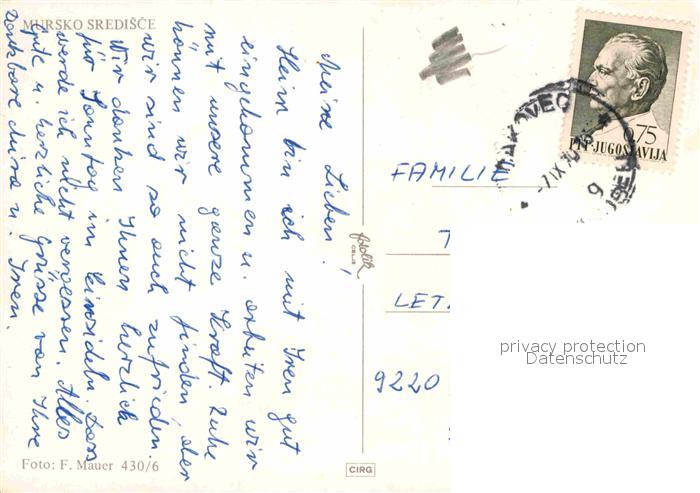 MURSKO SREDIŠČE
Meine Lieben!
Heim bin ich mit Iren gut
eingekommen u. arbeiten wir
mit unsere ganze Kraft. Ruhe
können wir nicht finden, aber
wir sind so auch zufrieden.
Wir danken Ihnen herzlich
für Sonntag im Einsiedeln. Das
werde ich nicht vergessen. Alles
gute u. herzliche Grüsse von Ihre
dankbare u. Iren.
Foto: F. Mauer 430/6
fotolik
CELJE
CIRG
75
PTT-JUGOSLAVIJA
FAMILIE
LET
9220
privacy protection
Datenschutz